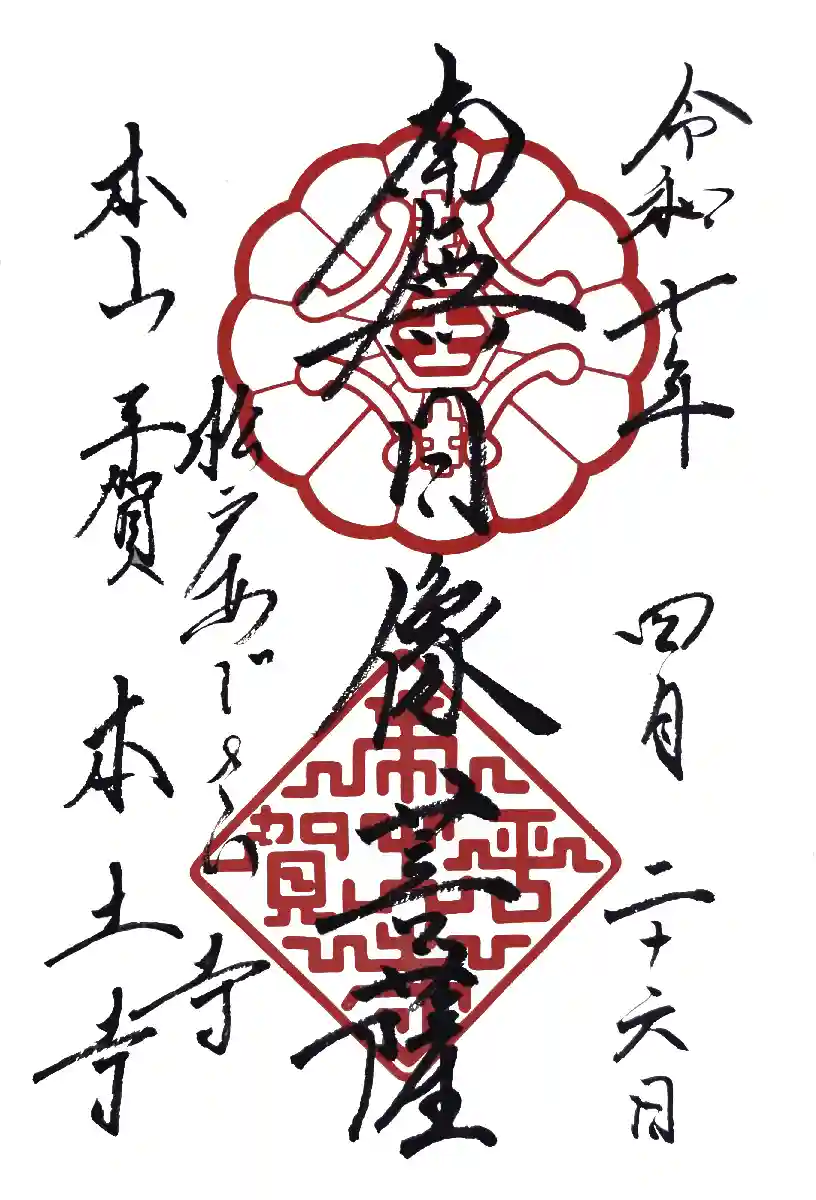 令和十年 四月二十六日
南無日像菩薩
松戸あじさゐ寺
本山 平賀 本土寺